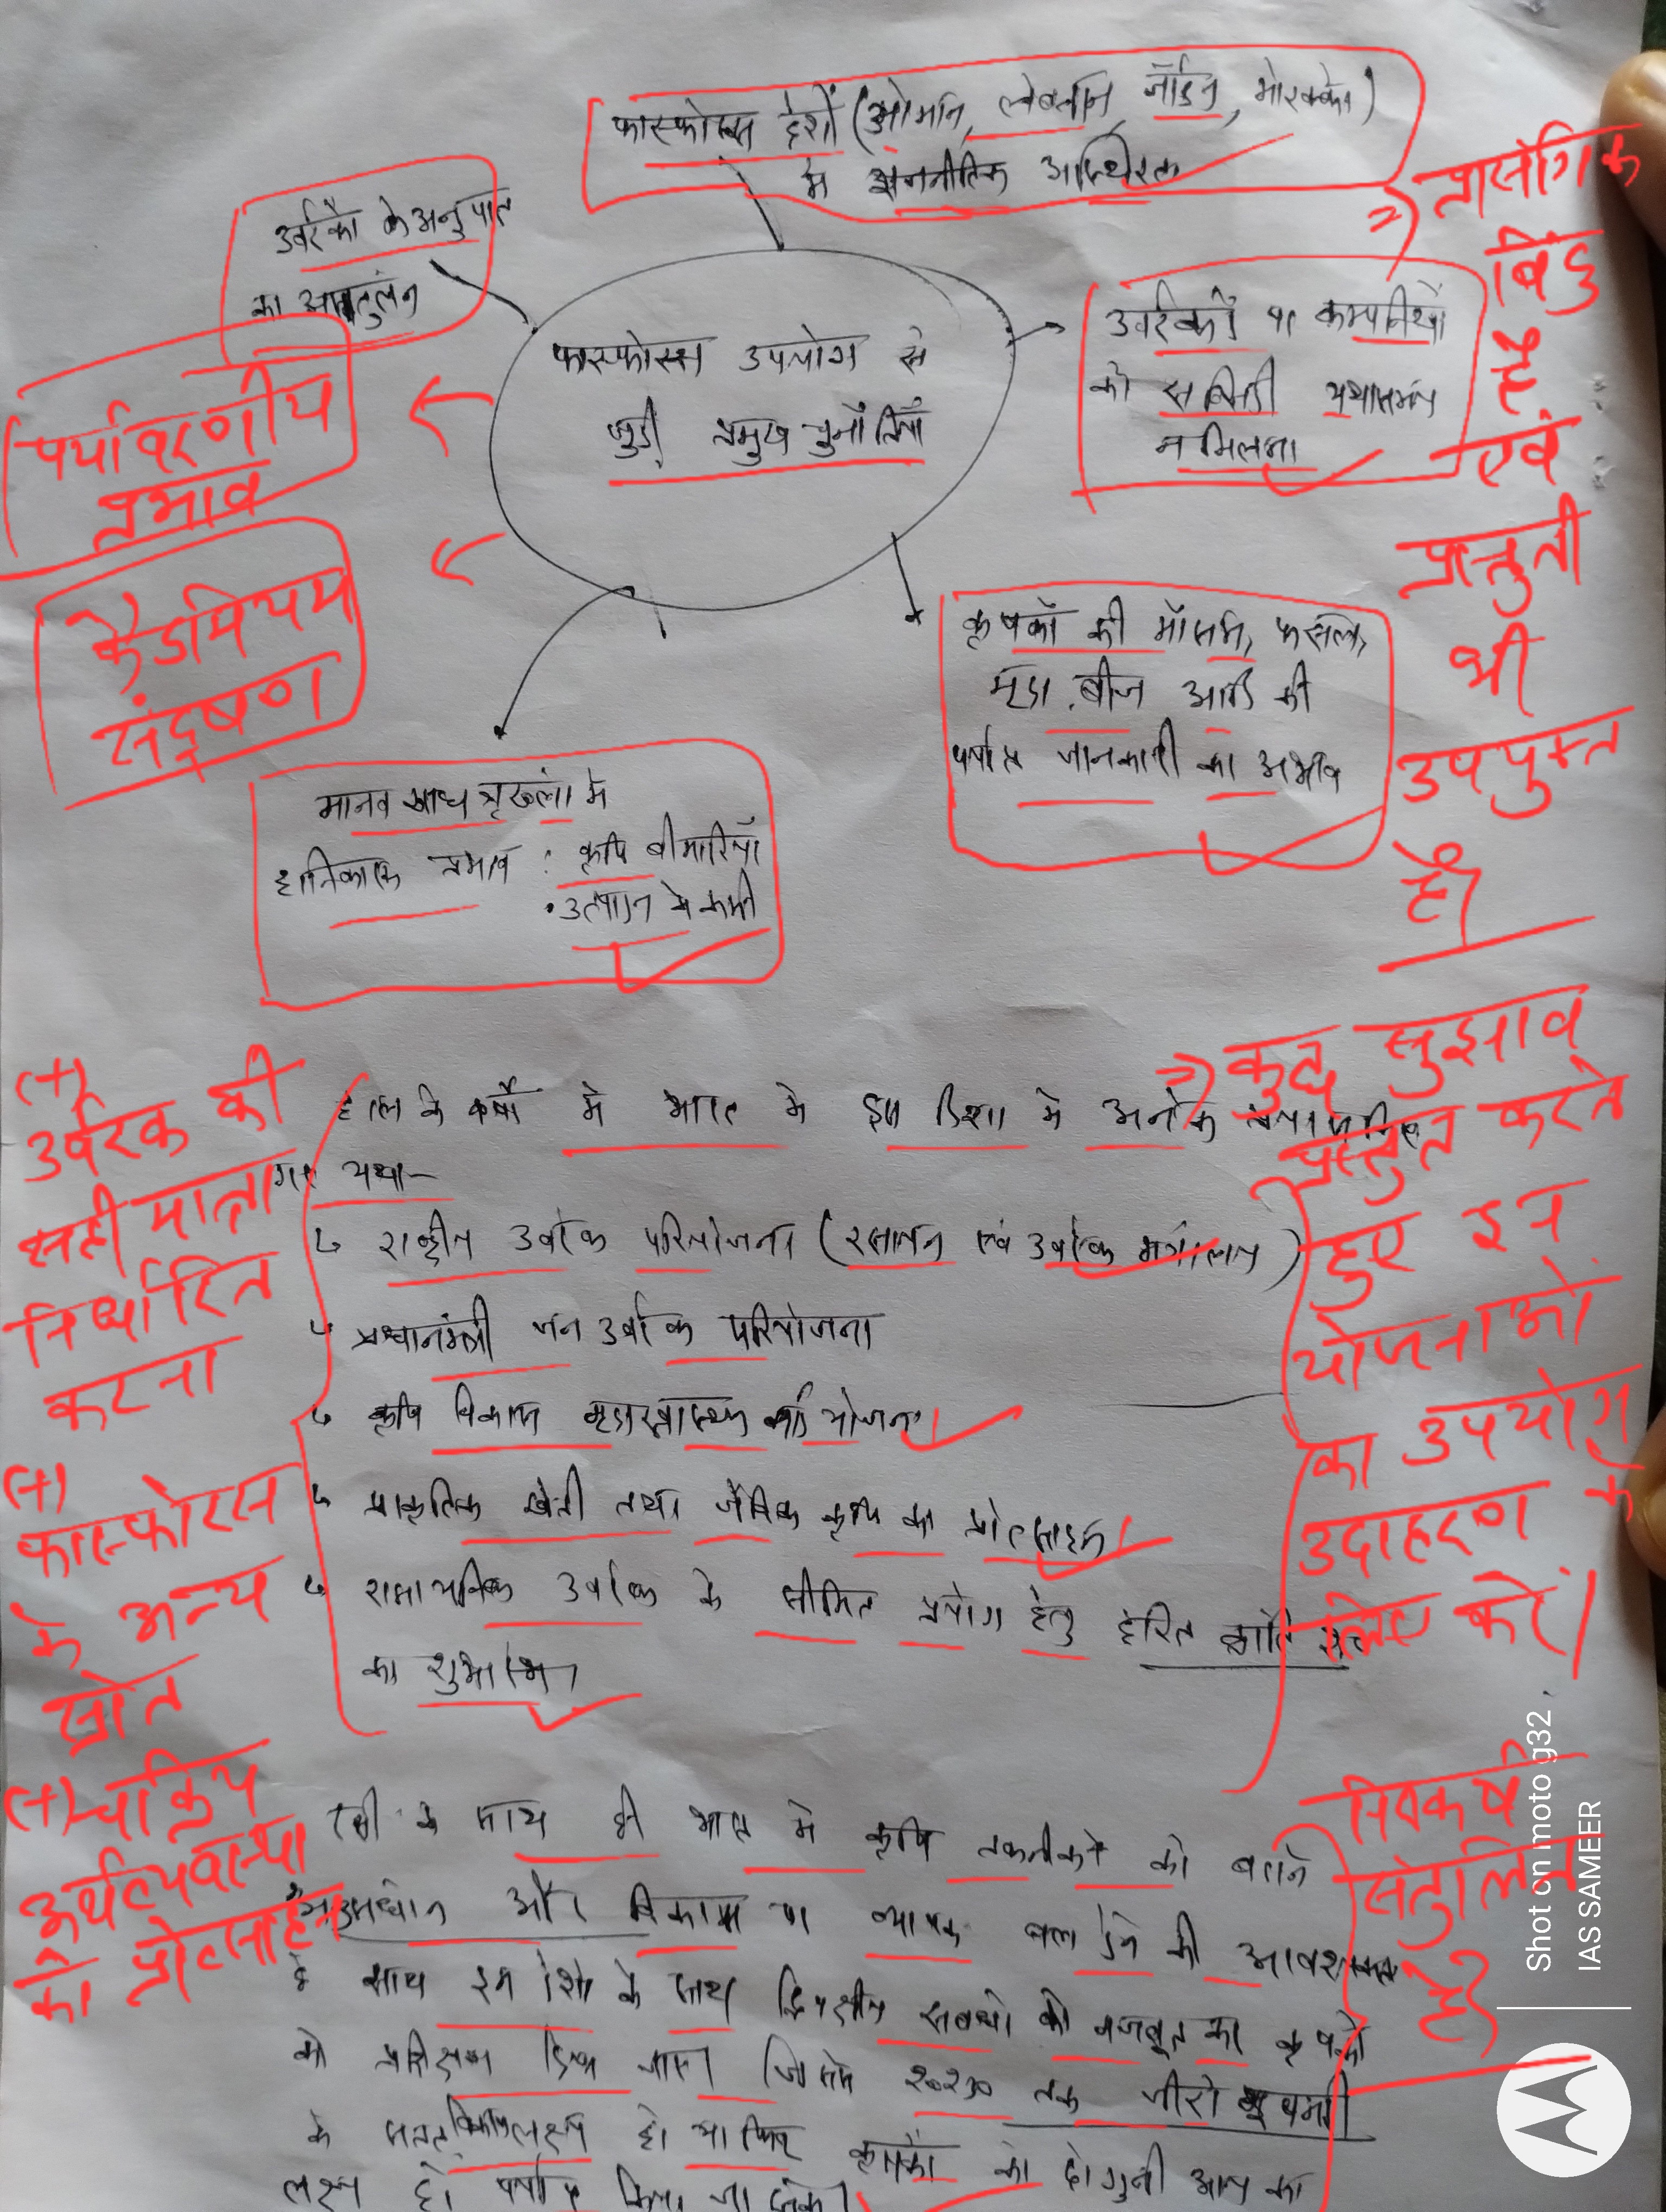 फास्फोरस देशों (ओमान, लेबनान, जॉर्डन, मोरक्को)
में राजनीतिक अस्थिरता
उर्वरकों के अनुपात
का असंतुलन
फास्फोरस उपयोग से
जुडी प्रमुख चुनौतियाँ
उर्वरकों पर कम्पनियों
को सब्सिडी यथासमय
न मिलना
कृषकों की मौसम, फसल,
मृदा, बीज आदि की
पर्याप्त जानकारी का अभाव
मानव खाद्य श्रृखंला में
हानिकारक प्रभाव : कृषि बीमारियाँ
• उत्पादन में कमी
पर्यावरणीय
प्रभाव
कैडमियम
संदूषण
⇒ प्रासंगिक
बिंदु
है
एवं
प्रस्तुती
भी
उपयुक्त
है।
हाल के वर्षों में भारत में इस दिशा में अनेक
गए यथा-
राष्ट्रीय उर्वरक परियोजना (रसायन एवं उर्वरक मंत्रालय)
प्रधानमंत्री जन उर्वरक परियोजना
कृषि विकास मृदा स्वास्थ्य कार्ड योजना
प्राकृतिक खेती तथा जैविक कृषि को प्रोत्साहन
रासायनिक उर्वरक के सीमित प्रयोग हेतु हरित क्रांति
का शुभारम्भ
⇒ कुछ सुझाव
प्रस्तुत करते
हुए इन
योजनाओं
का उपयोग
उदाहरण के
लिए करें।
(+)
उर्वरक की
सही मात्रा
निर्धारित
करना
(+)
फास्फोरस
के अन्य
स्रोत
(+) चक्रिय
अर्थव्यवस्था
को प्रोत्साहन
साथ ही भारत में कृषि तकनीकों को बढाने
अनुसंधान और विकास पर व्यापक बल देने की आवश्यकता
है साथ इन देशों के साथ द्विपक्षीय सबंधों को मजबूत कर कृषकों
को प्रशिक्षण दिया जाए। जिससे २०३० तक जीरो भूखमरी
के सतत विकास लक्ष्य हो या फिर कृषकों की दोगुनी आय का
लक्ष्य हो प्राप्त किया जा सके।
निष्कर्ष
संतुलित
है।
Shot on moto g32
IAS SAMEER